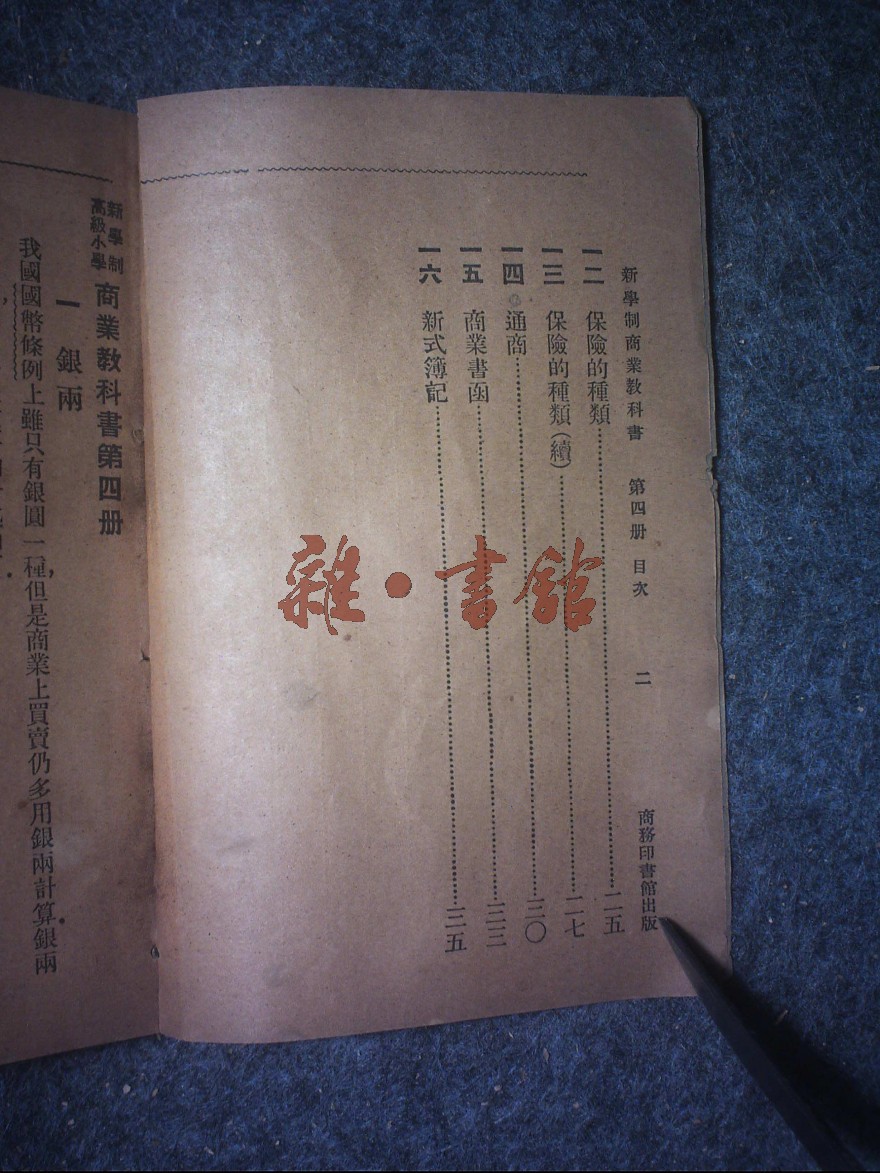 新學制商業教科書 第四册 目次 二 商務印書館出版
一二 保險的種類 二五
一三 保險的種類(續) 二七
一四 通商 三〇
一五 商業書函 三三
一六 新式簿記 三五
雜·書館
新學制
高級小學
商業教科書第四册
一 銀兩
我國國幣條例上雖只有銀圓一種,但是商業上買賣仍多用銀兩計算.銀兩